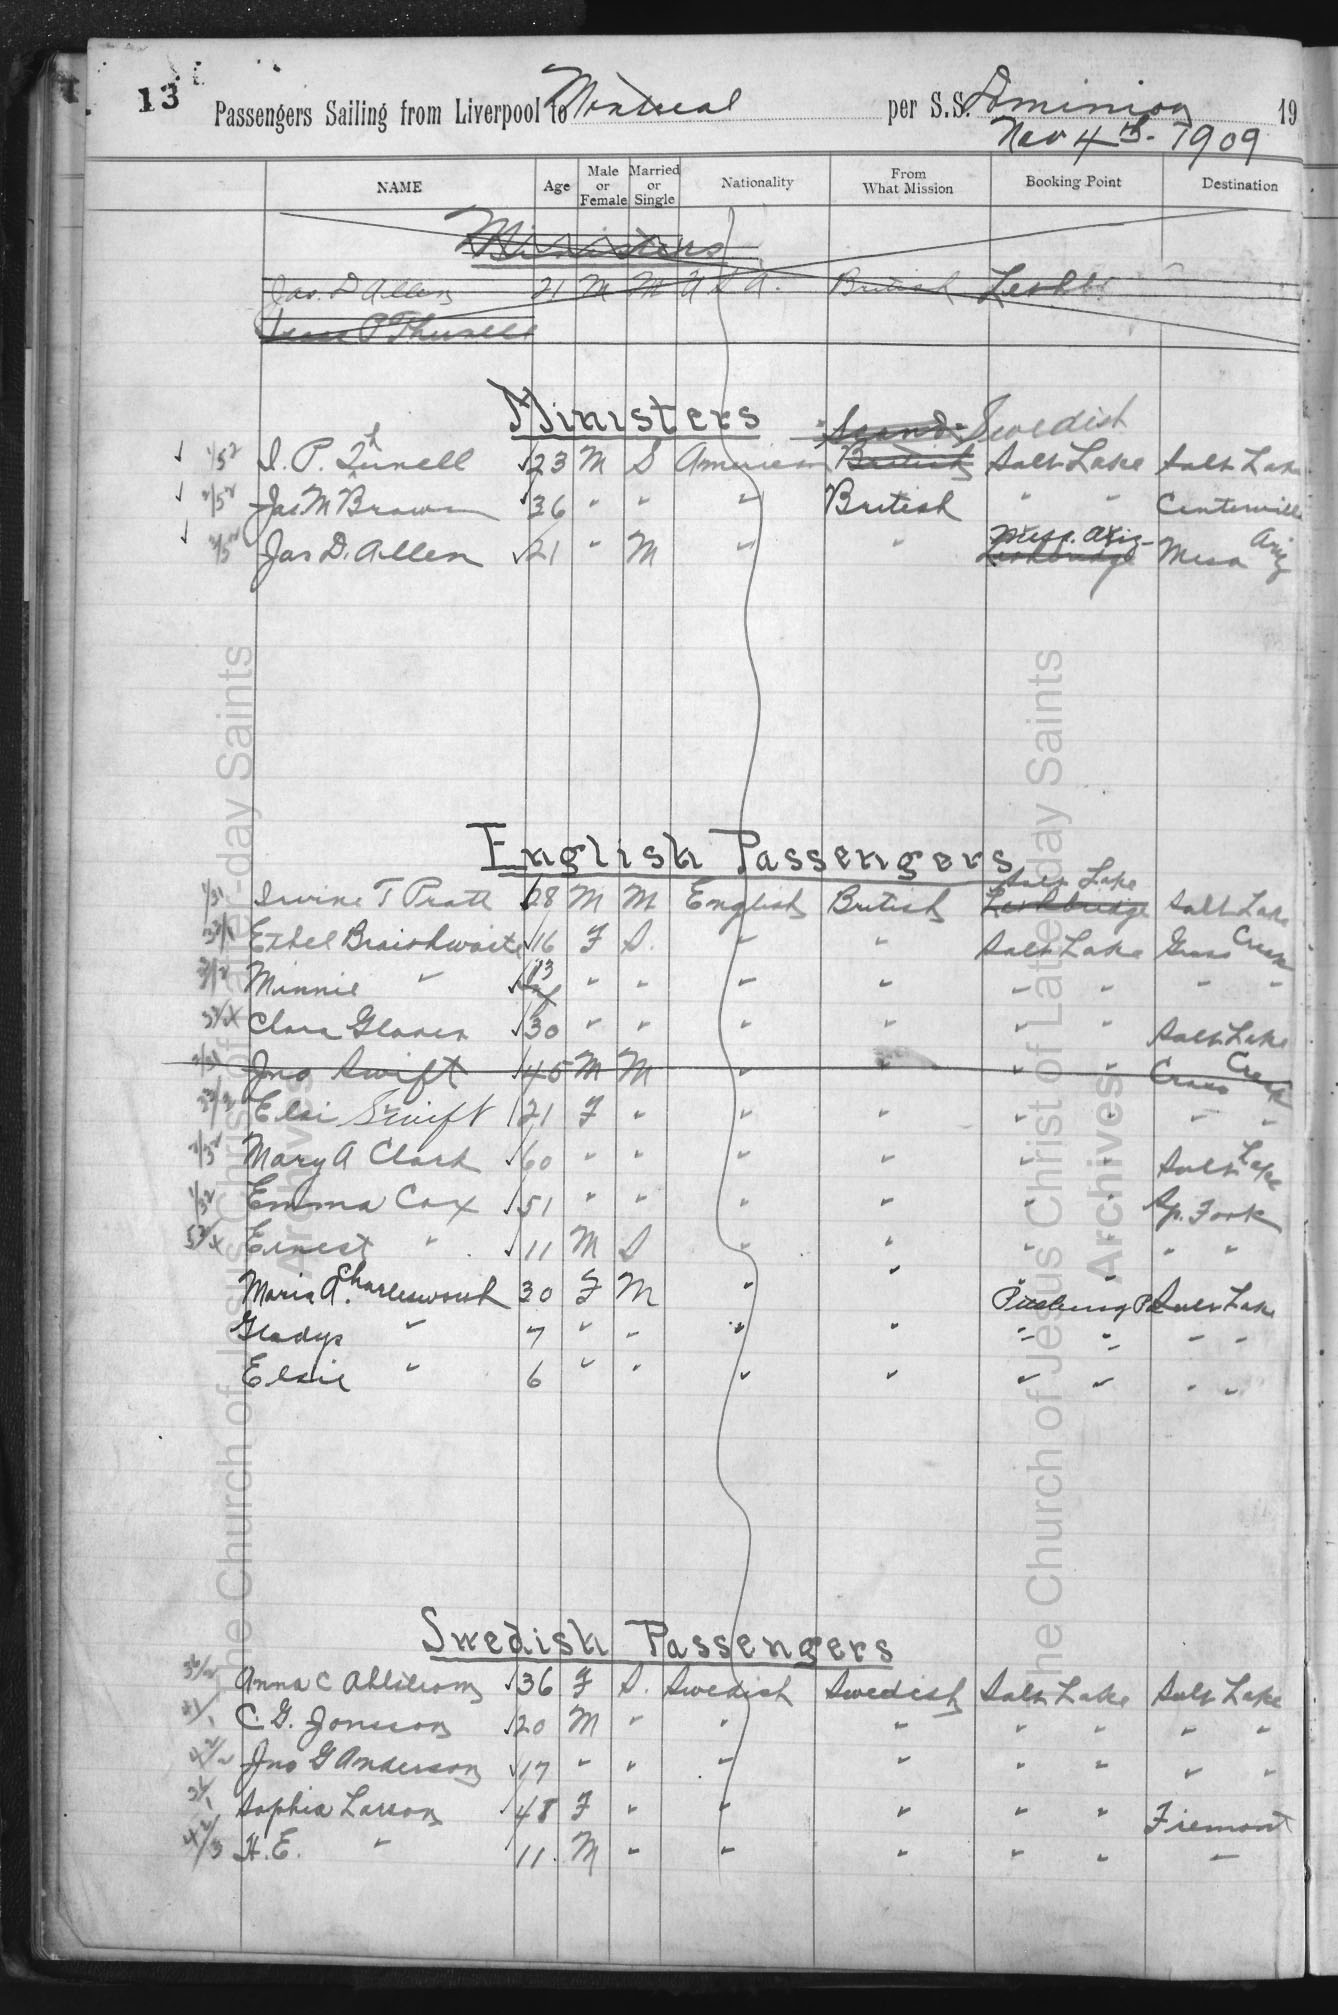 13
Passengers Sailing from Liverpool to Montreal per S.S. Dominion 19
Nov 4th - 1909
NAME Age Male or Female Married or Single Nationality From What Mission Booking Point Destination
Ministers
Jas. D Allen 21 M M U S A. British
Ministers
Scand. Swedish
1/52 I. P. Thunell 23 M S American British Salt Lake Salt Lake
2/52 Jas. M Brown 36 " " " British " " Centerville
3/52 Jas D. Allen 21 " M " " Mesa. Ariz- Lethbridge Mesa Ariz
English Passengers
Salt Lake
1/31 Irvine T Pratt 28 M M English British Lethbridge Salt Lake
Ethel Braithwaite 16 F S. " " Salt Lake Grass Creek
Minnie " 13 " " " " " " " "
Clara Glover 30 " " " " " " Salt Lake
Jno Swift 45 M M " " " " Grass Creek
Elsi Swift 21 F " " " " " " "
Mary A Clark 60 " " " " " " Salt Lake
1/32 Emma Cox 51 " " " " " " Sp. Fork
Ernest " 11 M S " " " " " "
Maria A. Charlesworth 30 F M " " Pittsburg Pa Salt Lake
Gladys " 7 " " " " " " " "
Elsie " 6 " " " " " " " "
Swedish Passengers
Anna C Ahlstrom 36 F S. Swedish Swedish Salt Lake Salt Lake
41/1 C. G. Jonsson 20 M " " " " " " "
42/2 Jno G Anderson 17 " " " " " " " "
Sophia Larson 48 F " " " " " Fremont
42/3 H. E. " 11 M " " " " " "
The Church of Jesus Christ of Latter-day Saints
Archives
The Church of Jesus Christ of Latter-day Saints
Archives